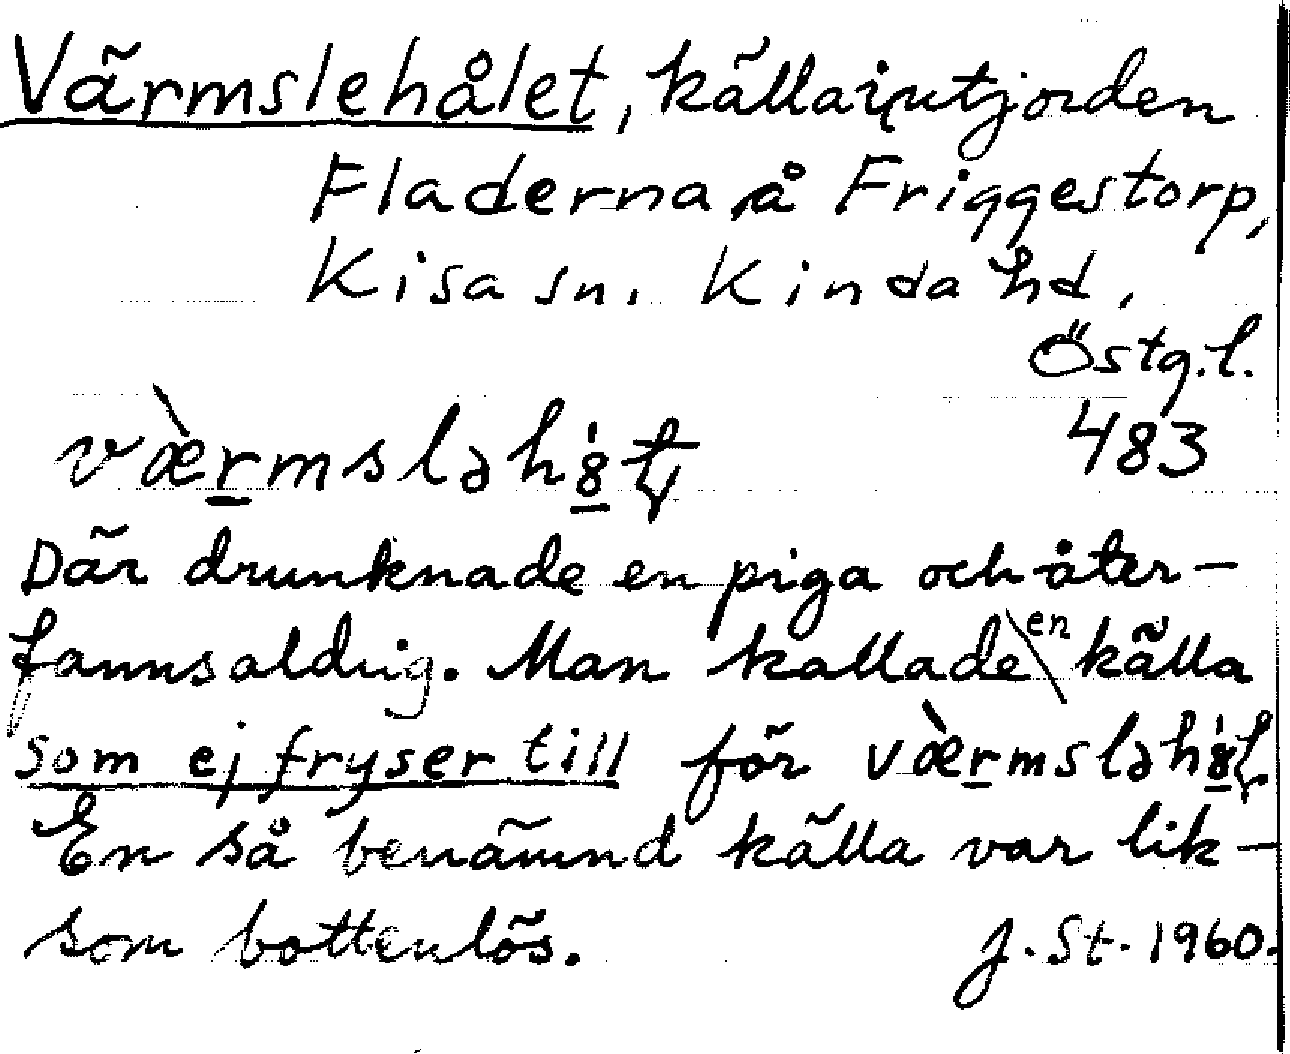 Värmslehålet, källa i utjorden
Fladerna å Friggestorp,
Kisa sn. Kinda hd,
Östg.l.
483
Där drunknade en piga och åter-
fanns aldrig. Man kallade en källa
som ej fryser till för
En så benämnd källa var lik-
som bottenlös. J. St. 1960.